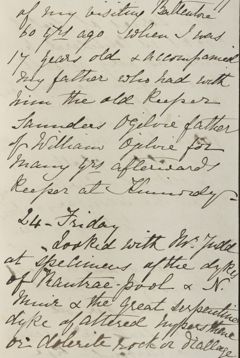 of my visiting Ballintore
60 yrs ago when I was
17 years old & accompanied
my father who had with
him the old Keeper
Saunders Ogilvie father
of William Ogilvie for
many yrs afterwards
Keeper at
24 - Friday
Looked with Mr. Judd
at specimens of the dyke
of & N
Muir & the great serpentine
dyke of altered hypersthene
or dolerite rock or Diallage